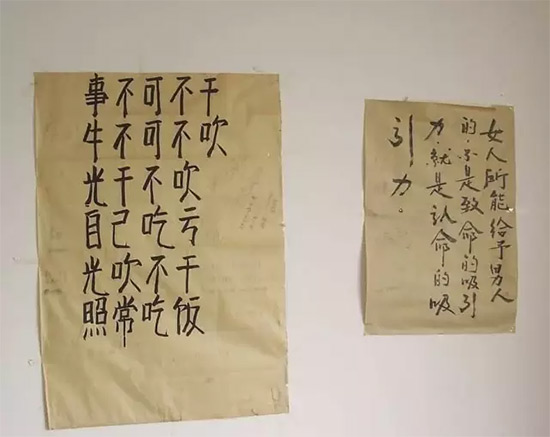 事不可不干
牛不可不吹
光干不吹
自己吃亏
光吹不干
照常吃饭
女人所能给予男人
的.不是致命的吸引
力.就是认命的吸
引力。